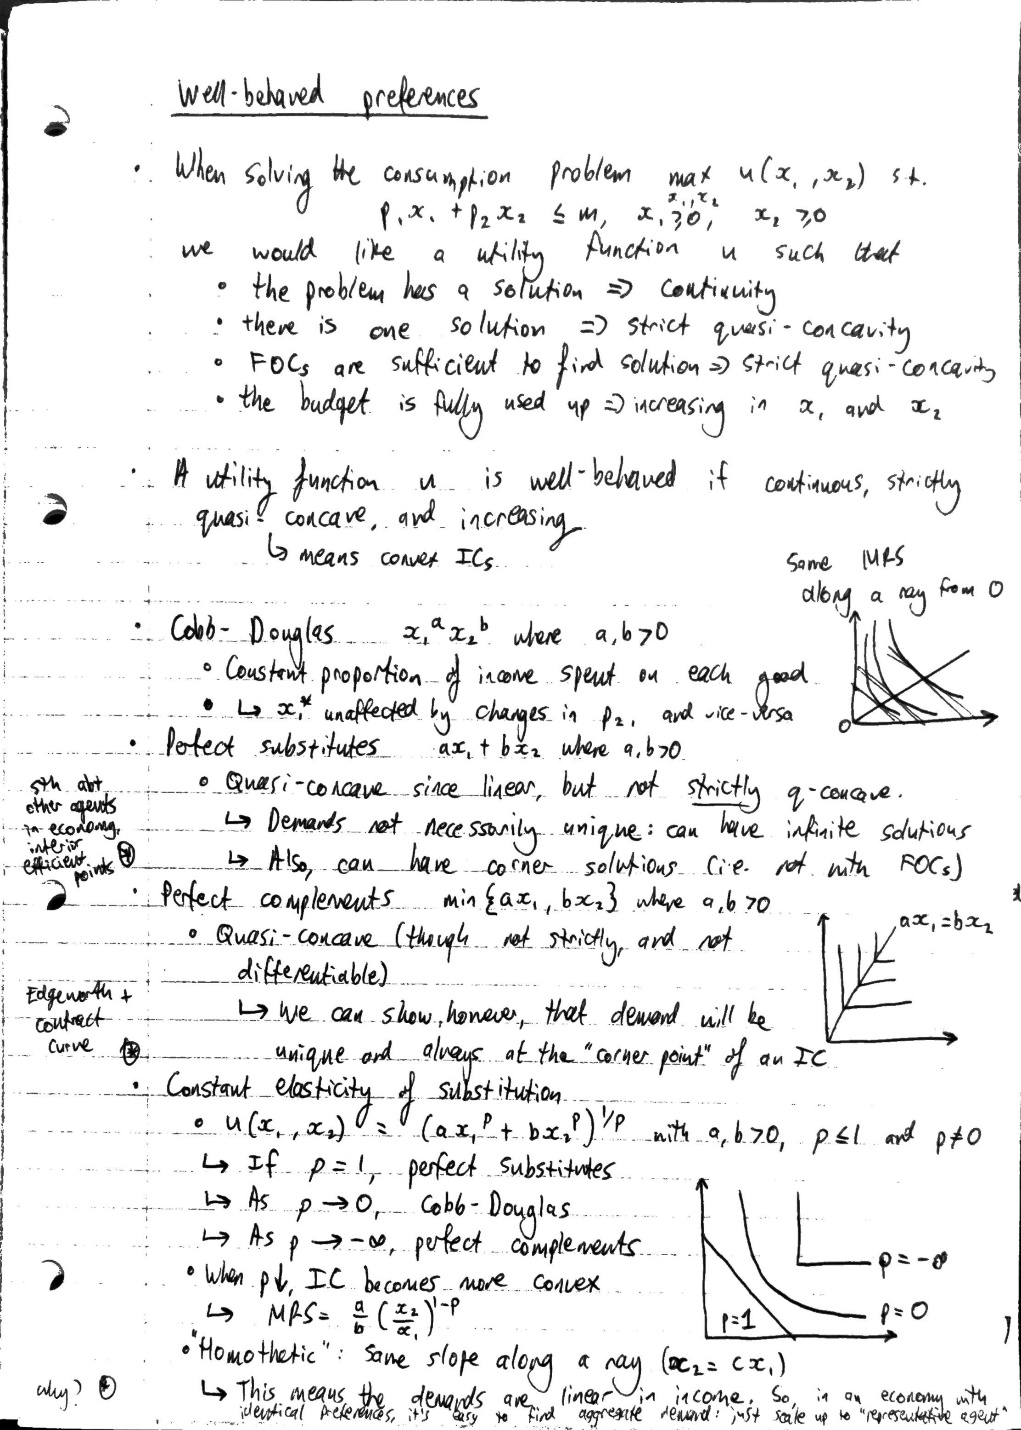 Well-behaved preferences
• When solving the consumption problem max u(x₁, x₂) s.t.
x₁, x₂
p₁x₁ + p₂x₂ ≤ m, x₁ ≥ 0, x₂ ≥ 0
we would like a utility function u such that
• the problem has a solution ⇒ continuity
• there is one solution ⇒ strict quasi-concavity
• FOCs are sufficient to find solution ⇒ strict quasi-concavity
• the budget is fully used up ⇒ increasing in x₁ and x₂
• A utility function u is well-behaved if continuous, strictly
quasi-concave, and increasing
↳ means convex ICs
Same MRS
along a ray from 0
• Cobb-Douglas x₁ᵃx₂ᵇ where a,b>0
• Constant proportion of income spent on each good
• ↳ x₁* unaffected by changes in p₂, and vice-versa
0
• Perfect substitutes ax₁ + bx₂ where a,b>0
• Quasi-concave since linear, but not strictly q-concave.
↳ Demands not necessarily unique: can have infinite solutions
↳ Also, can have corner solutions (i.e. not with FOCs)
sth abt
other agents
in economy,
interior
efficient
points ⊛
• Perfect complements min{ax₁, bx₂} where a,b>0
• Quasi-concave (though not strictly, and not
differentiable)
↳ We can show, however, that demand will be
unique and always at the "corner point" of an IC
ax₁=bx₂
Edgeworth +
contract
curve ⊛
• Constant elasticity of substitution
• u(x₁, x₂) = (ax₁ᵖ + bx₂ᵖ)^1/p with a,b>0, p≤1 and p≠0
↳ If p=1, perfect substitutes
↳ As p→0, Cobb-Douglas
↳ As p→-∞, perfect complements
• When p↓, IC becomes more convex
↳ MRS = a/b (x₂/x₁)^1-p
p=-∞
p=0
p=1
• "Homothetic": Same slope along a ray (x₂ = cx₁)
↳ This means the demands are linear in income. So, in an economy with
identical preferences, it's easy to find aggregate demand: just scale up to "representative agent"
why? ⊛